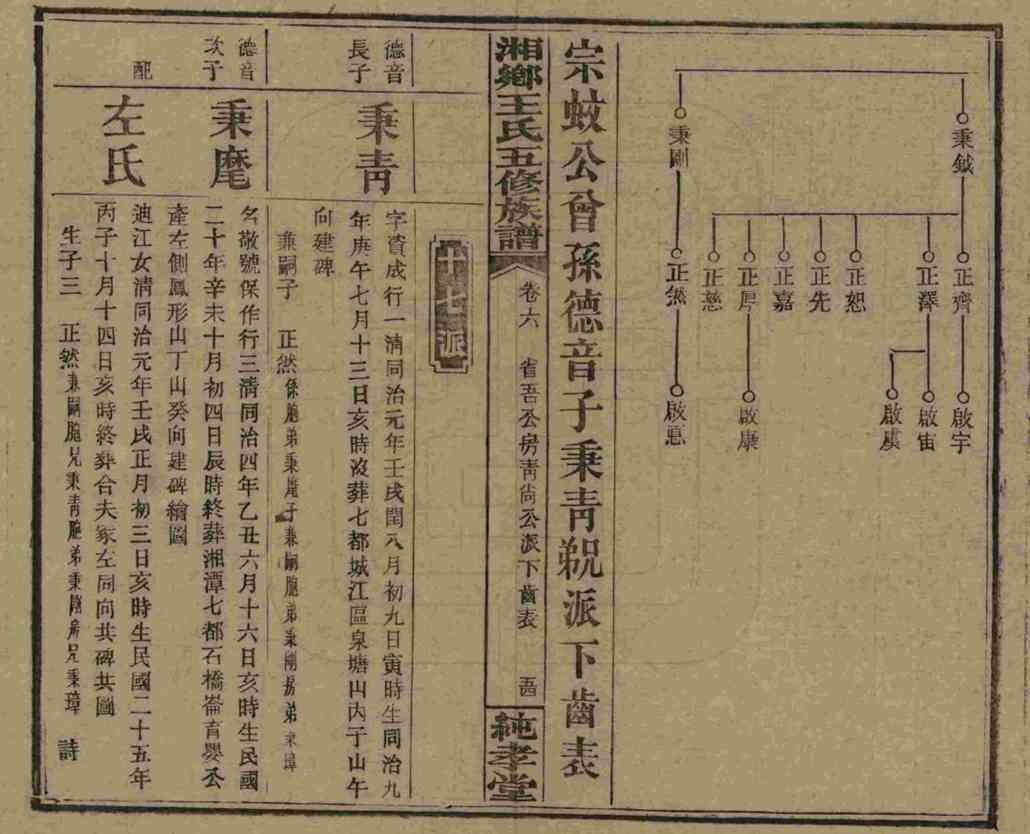 秉鉞
秉剛
正齊
正澤
正恕
正先
正嘉
正厚
正慈
正然
啟宇
啟宙
啟虞
啟康
啟惠
宗蚊公曾孫德音子秉青派下齒表
湘鄉王氏五修族譜
卷六 省吾公房青尚公派下齒表
純孝堂
十七派
德音長子
秉青
字贊成行一清同治元年壬戌閏八月初九日寅時生同治九
年庚午七月十三日亥時沒葬七都城江區泉塘山內子山午
向建碑
兼嗣子 正然係胞弟秉麾子兼嗣胞弟秉剛房弟秉璋
德音次子
秉麾
名敬號保作行三清同治四年乙丑六月十六日亥時生民國
二十年辛未十月初四日辰時終葬湘潭七都石橋崙育嬰公
產左側鳳形山丁山癸向建碑繪圖
配
左氏
迪江女清同治元年壬戌正月初三日亥時生民國二十五年
丙子十月十四日亥時終葬合夫冢左同向共碑共圖
生子三 正然兼嗣胞兄秉青胞弟秉剛房兄秉璋 詩